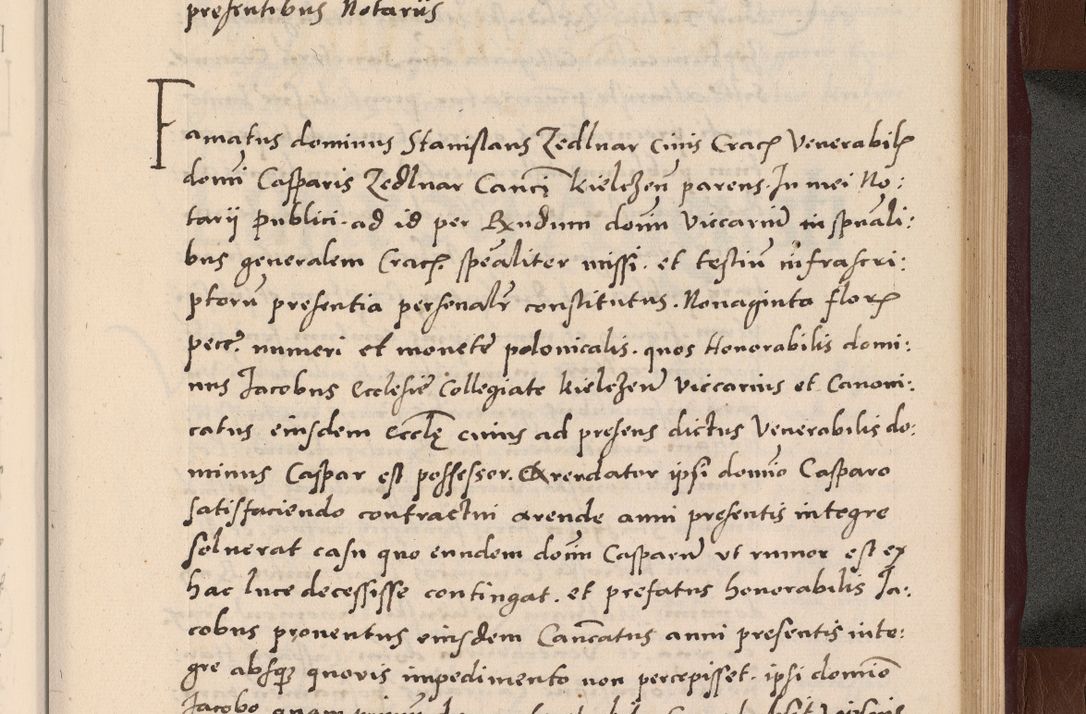 presentibus Notariis
Famatus dominus Stanislaus Zedlnar civis Crac̃ Venerabil̃
domi Casparis Zedlnar Canci kielczen̄ parens. In mei No:
tarij publici. ad id per Rxndum domi Viccariu in spũali:
bus generalem Crac̃. speāliter missi. et testiū infrascri:
ptorū presentia personalr̃ constitutus. Nonaginta flor̃
pece. numeri et monete polonicalis. quos Honorabilis domi:
nus Jacobus Ecclesie Collegiate kielczen Viccarius et Canoni:
catus eiusdem Eccle cuius ad presens dictus Venerabilis do:
minus Caspar est possessor. Arendator ipsi domio Casparo
satisfaciendo contractui arende anni presentis integre
soluerat casu quo eundem domi Casparu vt rumor est ex
hac luce decessisse contingat. et prefatus honorabilis Ja:
cobus prouentus eiusdem Cancatus anni presentis inte:
gre absq3 quouis impedimento non percepisset. ipsi domio
Jacobo